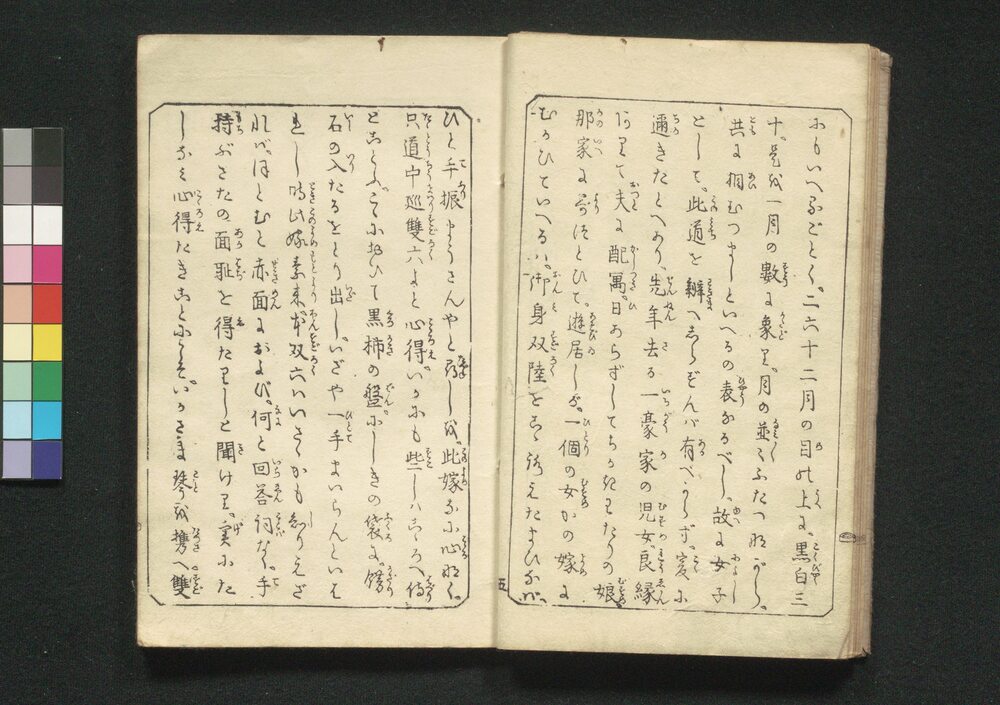 にもいへるごとく。二六十二月の目の上に。黒白三
十。是を一月の數に象り。月の並ふふたつながら。
共に相むつましといへるの表なるべし。故に女子
として。此道を辨へしらずんば有べからず。爰に
邇きたとへあり。先年去る一豪家の児女。良縁
ありて夫に配偶。日あらずしてちかきわたりの娘
那家に集ひて。遊居しが。一個の女かの嫁に
むかひていへるハ。御身双陸をこゝろえたまひなバ。
ひと手振まうさんやと尋しを。此嫁なに心なく。
只道中巡雙六よと心得。いかにも些しハこゝろへ侍
とこたふ。こゝにおひて黒柿の盤にしきの袋に。備
石の入たるをとり出し。いざや一手まいらんといは
れし時此嫁素来本双六ハいさゝかもしりえざ
れバ。ほとむと赤面におよび。何と回答詞なく。手
持ぶさたの面耻を得たりしと聞けり。実にた
しなミ心得たきことにこそ。いかさま琴を携へ雙
五